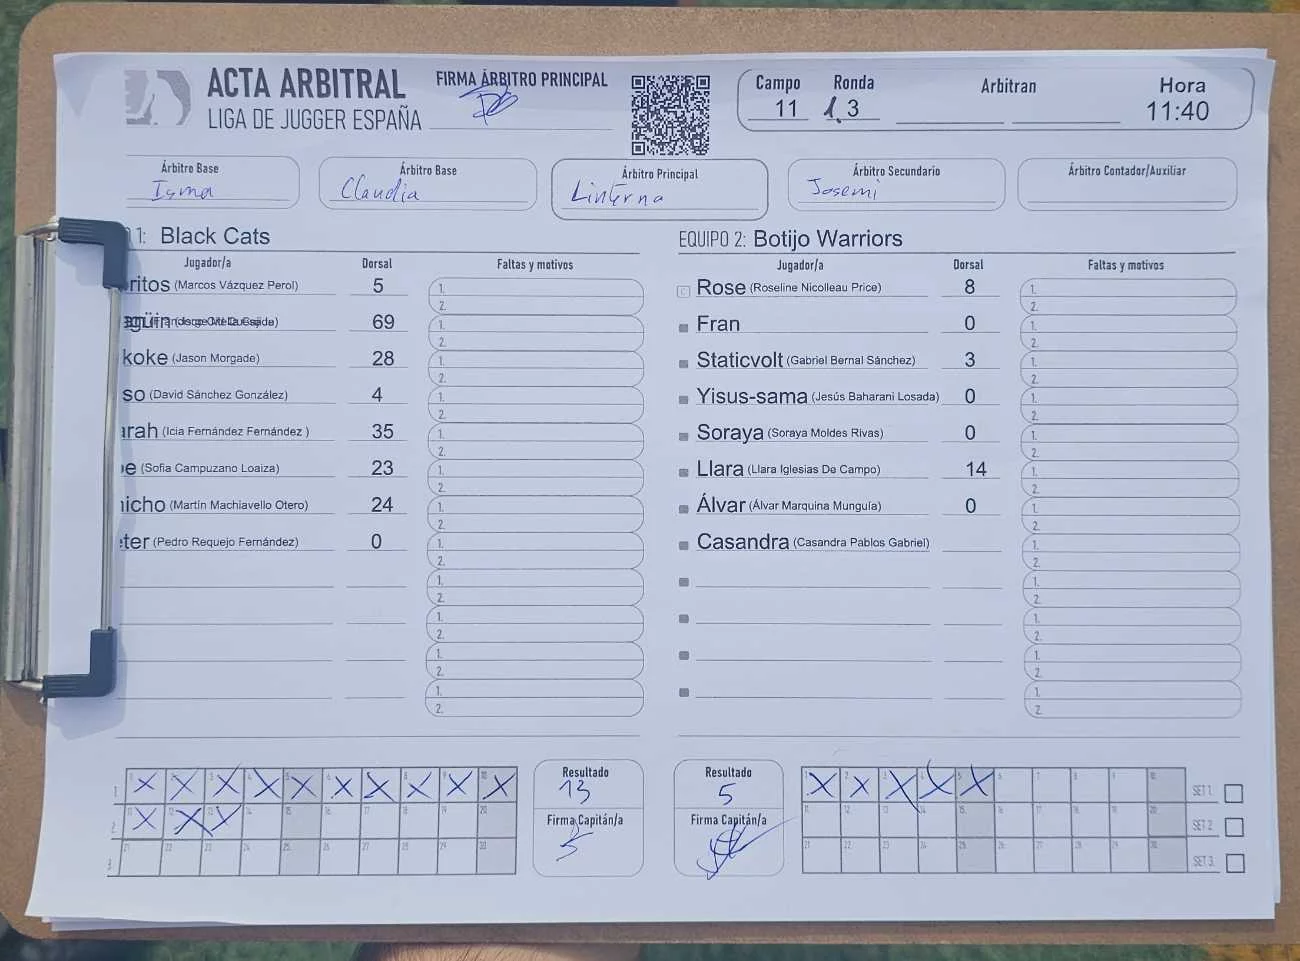 ACTA ARBITRAL
LIGA DE JUGGER ESPAÑA
FIRMA ÁRBITRO PRINCIPAL
Campo Ronda Arbitran Hora
11 1.3 11:40
Árbitro Base Árbitro Base Árbitro Principal Árbitro Secundario Árbitro Contador/Auxiliar
Isma Claudia Linterna Josemi
1: Black Cats
Jugador/a Dorsal Faltas y motivos
ritos (Marcos Vázquez Perol) 5 1. 2.
69 1. 2.
koke (Jason Morgade) 28 1. 2.
so (David Sánchez González) 4 1. 2.
arah (Icia Fernández Fernández ) 35 1. 2.
e (Sofia Campuzano Loaiza) 23 1. 2.
icho (Martín Machiavello Otero) 24 1. 2.
ter (Pedro Requejo Fernández) 0 1. 2.
1. 2.
1. 2.
1. 2.
1. 2.
EQUIPO 2: Botijo Warriors
Jugador/a Dorsal Faltas y motivos
Rose (Roseline Nicolleau Price) 8 1. 2.
Fran 0 1. 2.
Staticvolt (Gabriel Bernal Sánchez) 3 1. 2.
Yisus-sama (Jesús Baharani Losada) 0 1. 2.
Soraya (Soraya Moldes Rivas) 0 1. 2.
Llara (Llara Iglesias De Campo) 14 1. 2.
Álvar (Álvar Marquina Munguía) 0 1. 2.
Casandra (Casandra Pablos Gabriel) 1. 2.
1. 2.
1. 2.
1. 2.
1. 2.
1 2 3 4 5 6 7 8 9 10
11 12 13 14 15 16 17 18 19 20
21 22 23 24 25 26 27 28 29 30
Resultado
13
Firma Capitán/a
Resultado
5
Firma Capitán/a
1 2 3 4 5 6 7 8 9 10 SET 1.
11 12 13 14 15 16 17 18 19 20 SET 2.
21 22 23 24 25 26 27 28 29 30 SET 3.